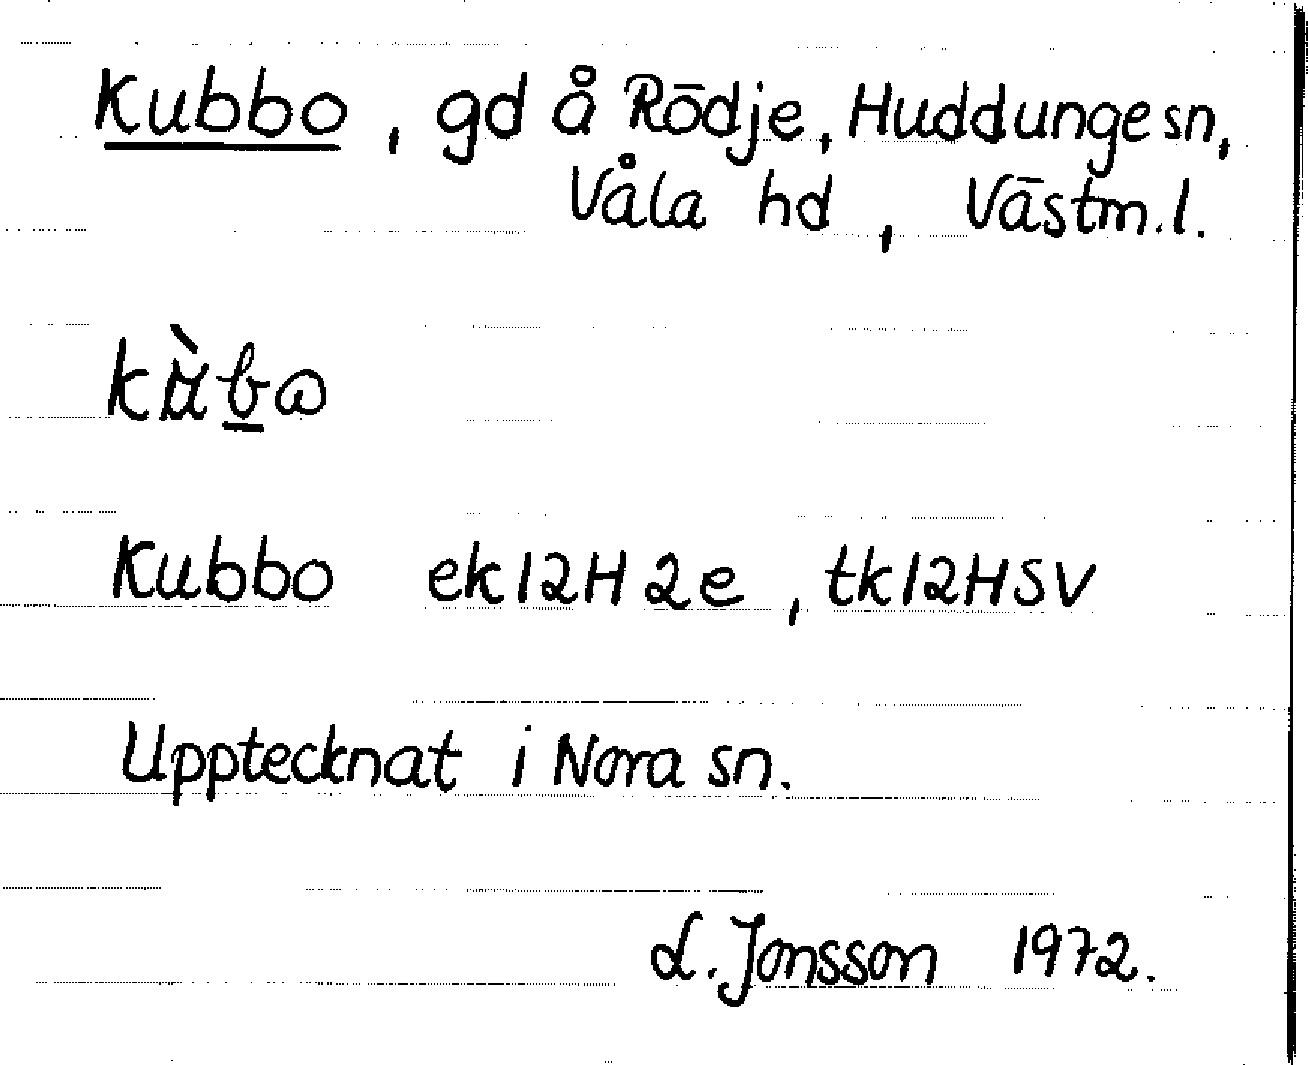 Kubbo, gd å Rödje, Huddunge sn,
Våla hd, Västm.l.
Kubbo ek12H2e, tk12HSV
Upptecknat i Nora sn.
L. Jonsson 1972.